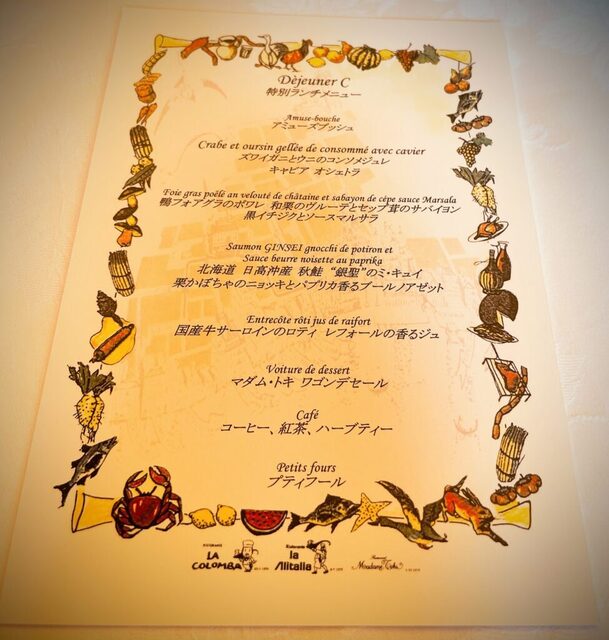 Dèjeuner C
特別ランチメニュー
Amuse-bouche
アミューズブッシュ
Crabe et oursin gellèe de consommé avec cavier
ズワイガニとウニのコンソメジュレ
キャビア オシェトラ
Foie gras poêlè an velouté de châtaine et sabayon de cépe sauce Marsala
鴨フォアグラのポワレ 和栗のヴルーテとセップ茸のサバイヨン
黒イチジクとソースマルサラ
Saumon GINSEI gnocchi de potiron et
Sauce beurre noisette au paprika
北海道 日高沖産 秋鮭 “銀聖”のミ・キュイ
栗かぼちゃのニョッキとパプリカ香るブールノアゼット
Entrecôte rôti jus de raifort
国産牛サーロインのロティ レフォールの香るジュ
Voiture de dessert
マダム・トキ ワゴンデセール
Café
コーヒー、紅茶、ハーブティー
Petits fours
プティフール
LA COLOMBA
Ristorante la Alitalia
Madame Toki